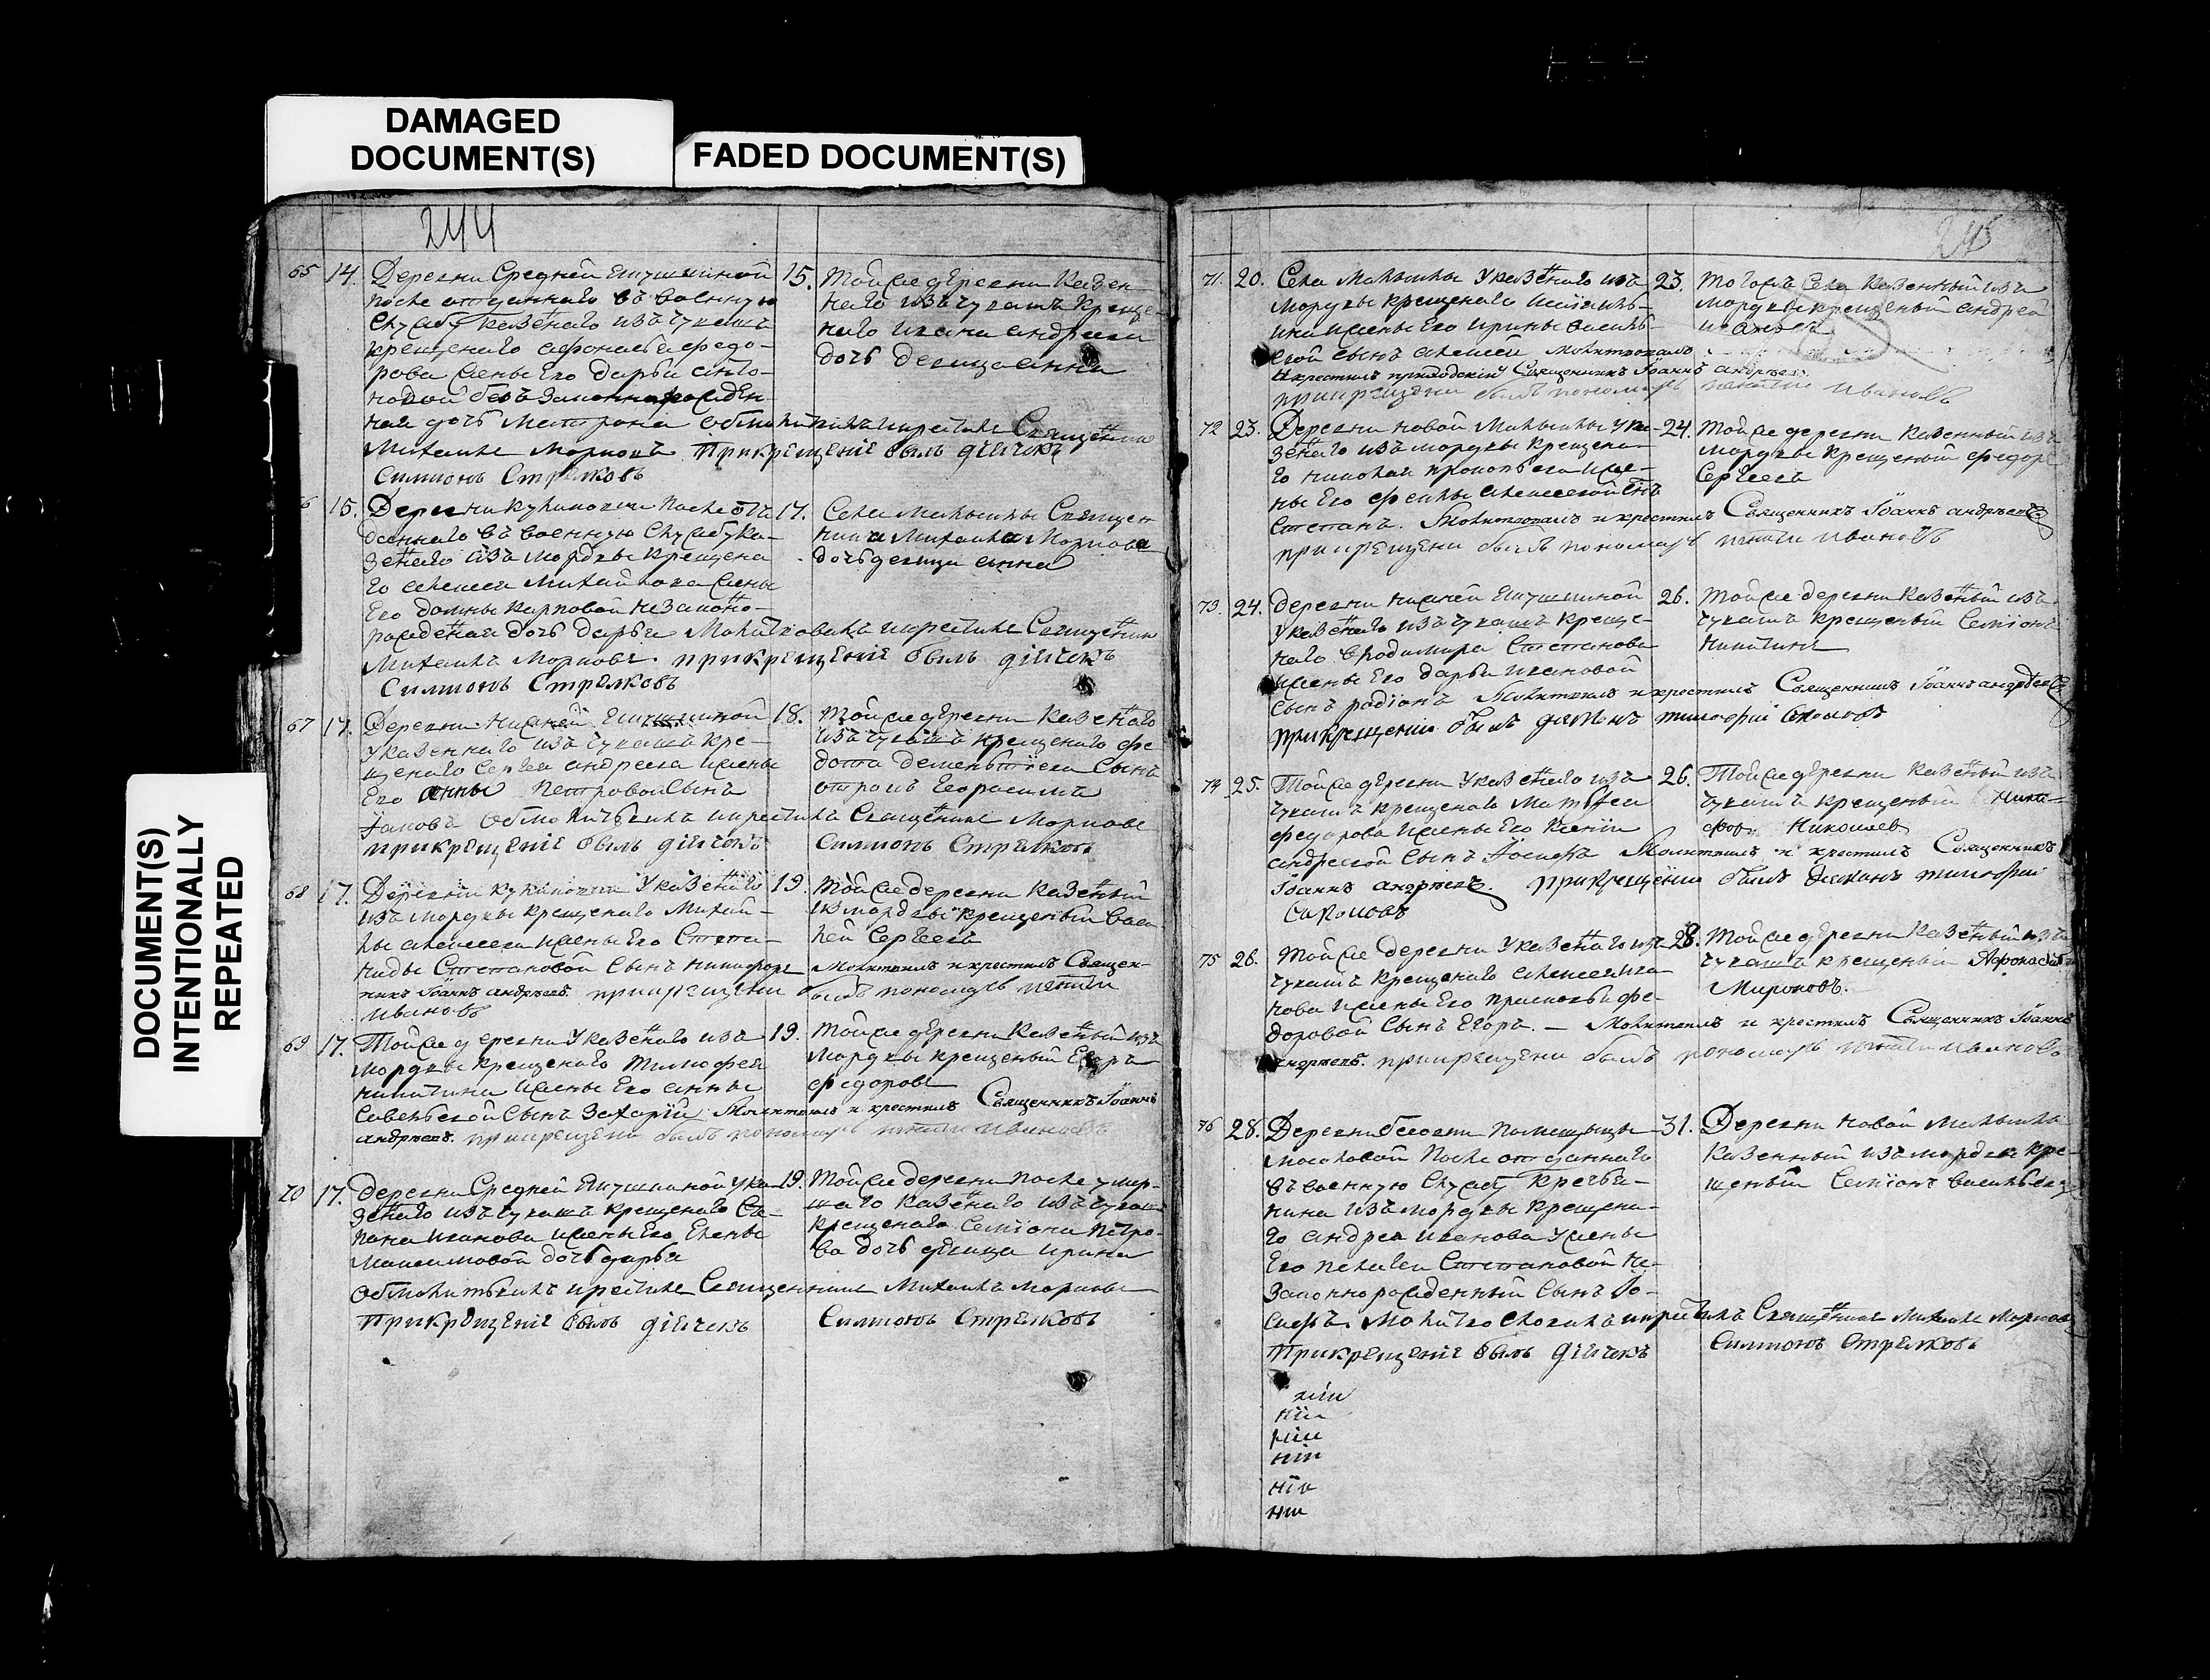 DAMAGED
DOCUMENT(S)
FADED DOCUMENT(S)
DOCUMENT(S)
INTENTIONALLY
REPEATED
244
65 14. Деревни Средней
после отданнаго въ военную
Службу казеннаго изъ чувашъ
крещенаго Афонасья Федо-
рова жены его Дарьи
безъ законнорожден-
ная дочь Матрона Священникъ
Михаилъ При крещение былъ дьячекъ
Симионъ Стрелковъ
15. Тойже деревни Казен
наго изъ чувашъ Креще-
наго Ивана Андреева
дочь девица Анна
15. Деревни после отъ
даннаго въ военную Службу ка-
зеннаго изъ мордвы крещена
го Алексея Михайлова жены
Его Домны Карповой незаконно-
рожденная дочь Дарья Священникъ
Михаилъ При крещение былъ дьячекъ
Симионъ Стрелковъ
17. Села Священ
ника Михаила
дочь девица Анна
67 17. Деревни Нижней
у казеннаго изъ чувашъ кре-
щенаго Сергея Андреева жены
Его Анны Петровой Сынъ
Иаковъ Священникъ
При крещение былъ дьячекъ Симионъ Стрелковъ
18. Тойже деревни Казеннаго
изъ чувашъ крещенаго Фе
дота Сынъ
отрокъ Герасимъ
68 17. Деревни У казеннаго
изъ мордвы крещенаго Михай-
лы Алексеева жены Его Степа-
ниды Степановой Сынъ Никифоръ
никъ Iоаннъ Андреевъ. при крещении былъ пономарь
Ивановъ
19. Тойже деревни казенный
из мордвы крещеный Васи
лей Сергеевъ
Молитвилъ и крестилъ Священ-
69 17. Тойже деревни У казеннаго изъ
мордвы крещенаго Тимофея
Никитина жены Его Анны
Савельевой Сынъ Захарiй Молитвилъ и крестилъ Священникъ Iоаннъ
Андреевъ. при крещении былъ пономарь Ивановъ
19. Тойже деревни Казенный изъ
мордвы крещеный Егоръ
Федоровъ
70 17. Деревни Средней у ка-
зеннаго изъ чувашъ крещенаго Сте-
пана Иванова жены Его Елены
Максимовой дочь Дарья
и крестилъ Священникъ Михаилъ
При крещение былъ дьячекъ Симионъ Стрелковъ
19. Тойже деревни после умер-
шаго казеннаго изъ чувашъ
крещенаго Семiона Петро-
ва дочь девица Ирина
245
71. 20. Села У казеннаго изъ
мордвы крещенаго
жены Его Ирины Василь-
евой Сынъ Алексей Молитвовалъ
и крестилъ приходскiй Священникъ Iоаннъ Андреевъ.
при крещении былъ пономарь Ивановъ
23. Тогожъ Села Казенный изъ
мордвы крещеный Андрей
72 23. Деревни Новой у ка-
зеннаго изъ мордвы крещена
го Николая Прокопьева же-
ны Его Феклы Алексеевой Сынъ
Степанъ. Молитвовалъ и крестилъ Священникъ Iоаннъ Андреевъ
при крещении былъ пономарь Ивановъ
24. Тойже деревни Казенный изъ
мордвы крещеный Федоръ
Сергеевъ
73. 24. Деревни Нижней
У казеннаго изъ чувашъ креще-
наго Владимира Степанова
жены Его Дарьи Ивановой
Сынъ Родiонъ Молитвилъ и крестилъ Священникъ Iоаннъ Андреевъ
при крещении былъ дiаконъ Тимофей
26. Тойже деревни Казенный изъ
чувашъ крещеный Семiонъ
Никитинъ
74 25. Тойже деревни У казеннаго изъ
чувашъ крещенаго Матфея
Федорова жены Его Ксенiи
Андреевой Сынъ Iосифъ Молитвилъ и крестилъ Священникъ
Iоаннъ Андреевъ. При крещении былъ дiаконъ Тимофей
26. Тойже деревни Казенный изъ
чувашъ крещеный Ники-
форъ Николаевъ
75 26. Тойже деревни У казеннаго изъ
чувашъ крещенаго Алексея Ива
нова жены Его Прасковьи Фе-
доровой Сынъ Егоръ. — Молитвилъ и крестилъ Священникъ Iоаннъ
Андреевъ. при крещении былъ пономарь Ивановъ
28. Тойже деревни Казенный изъ
чувашъ крещеный Афонасей
Мироновъ.
76 28. Деревни помещицы
после отданнаго
въ военную Службу Кресья-
нина изъ мордвы крещена-
го Андрея Иванова У жены
Его Пелагеи Степановой не-
законнорожденный Сынъ Iо-
сифъ. Священникъ Михаилъ
При крещение былъ дьячекъ Симионъ Стрелковъ
31. Деревни Новой
Казенный изъ мордвы кре-
щеный Семiонъ Васильевъ